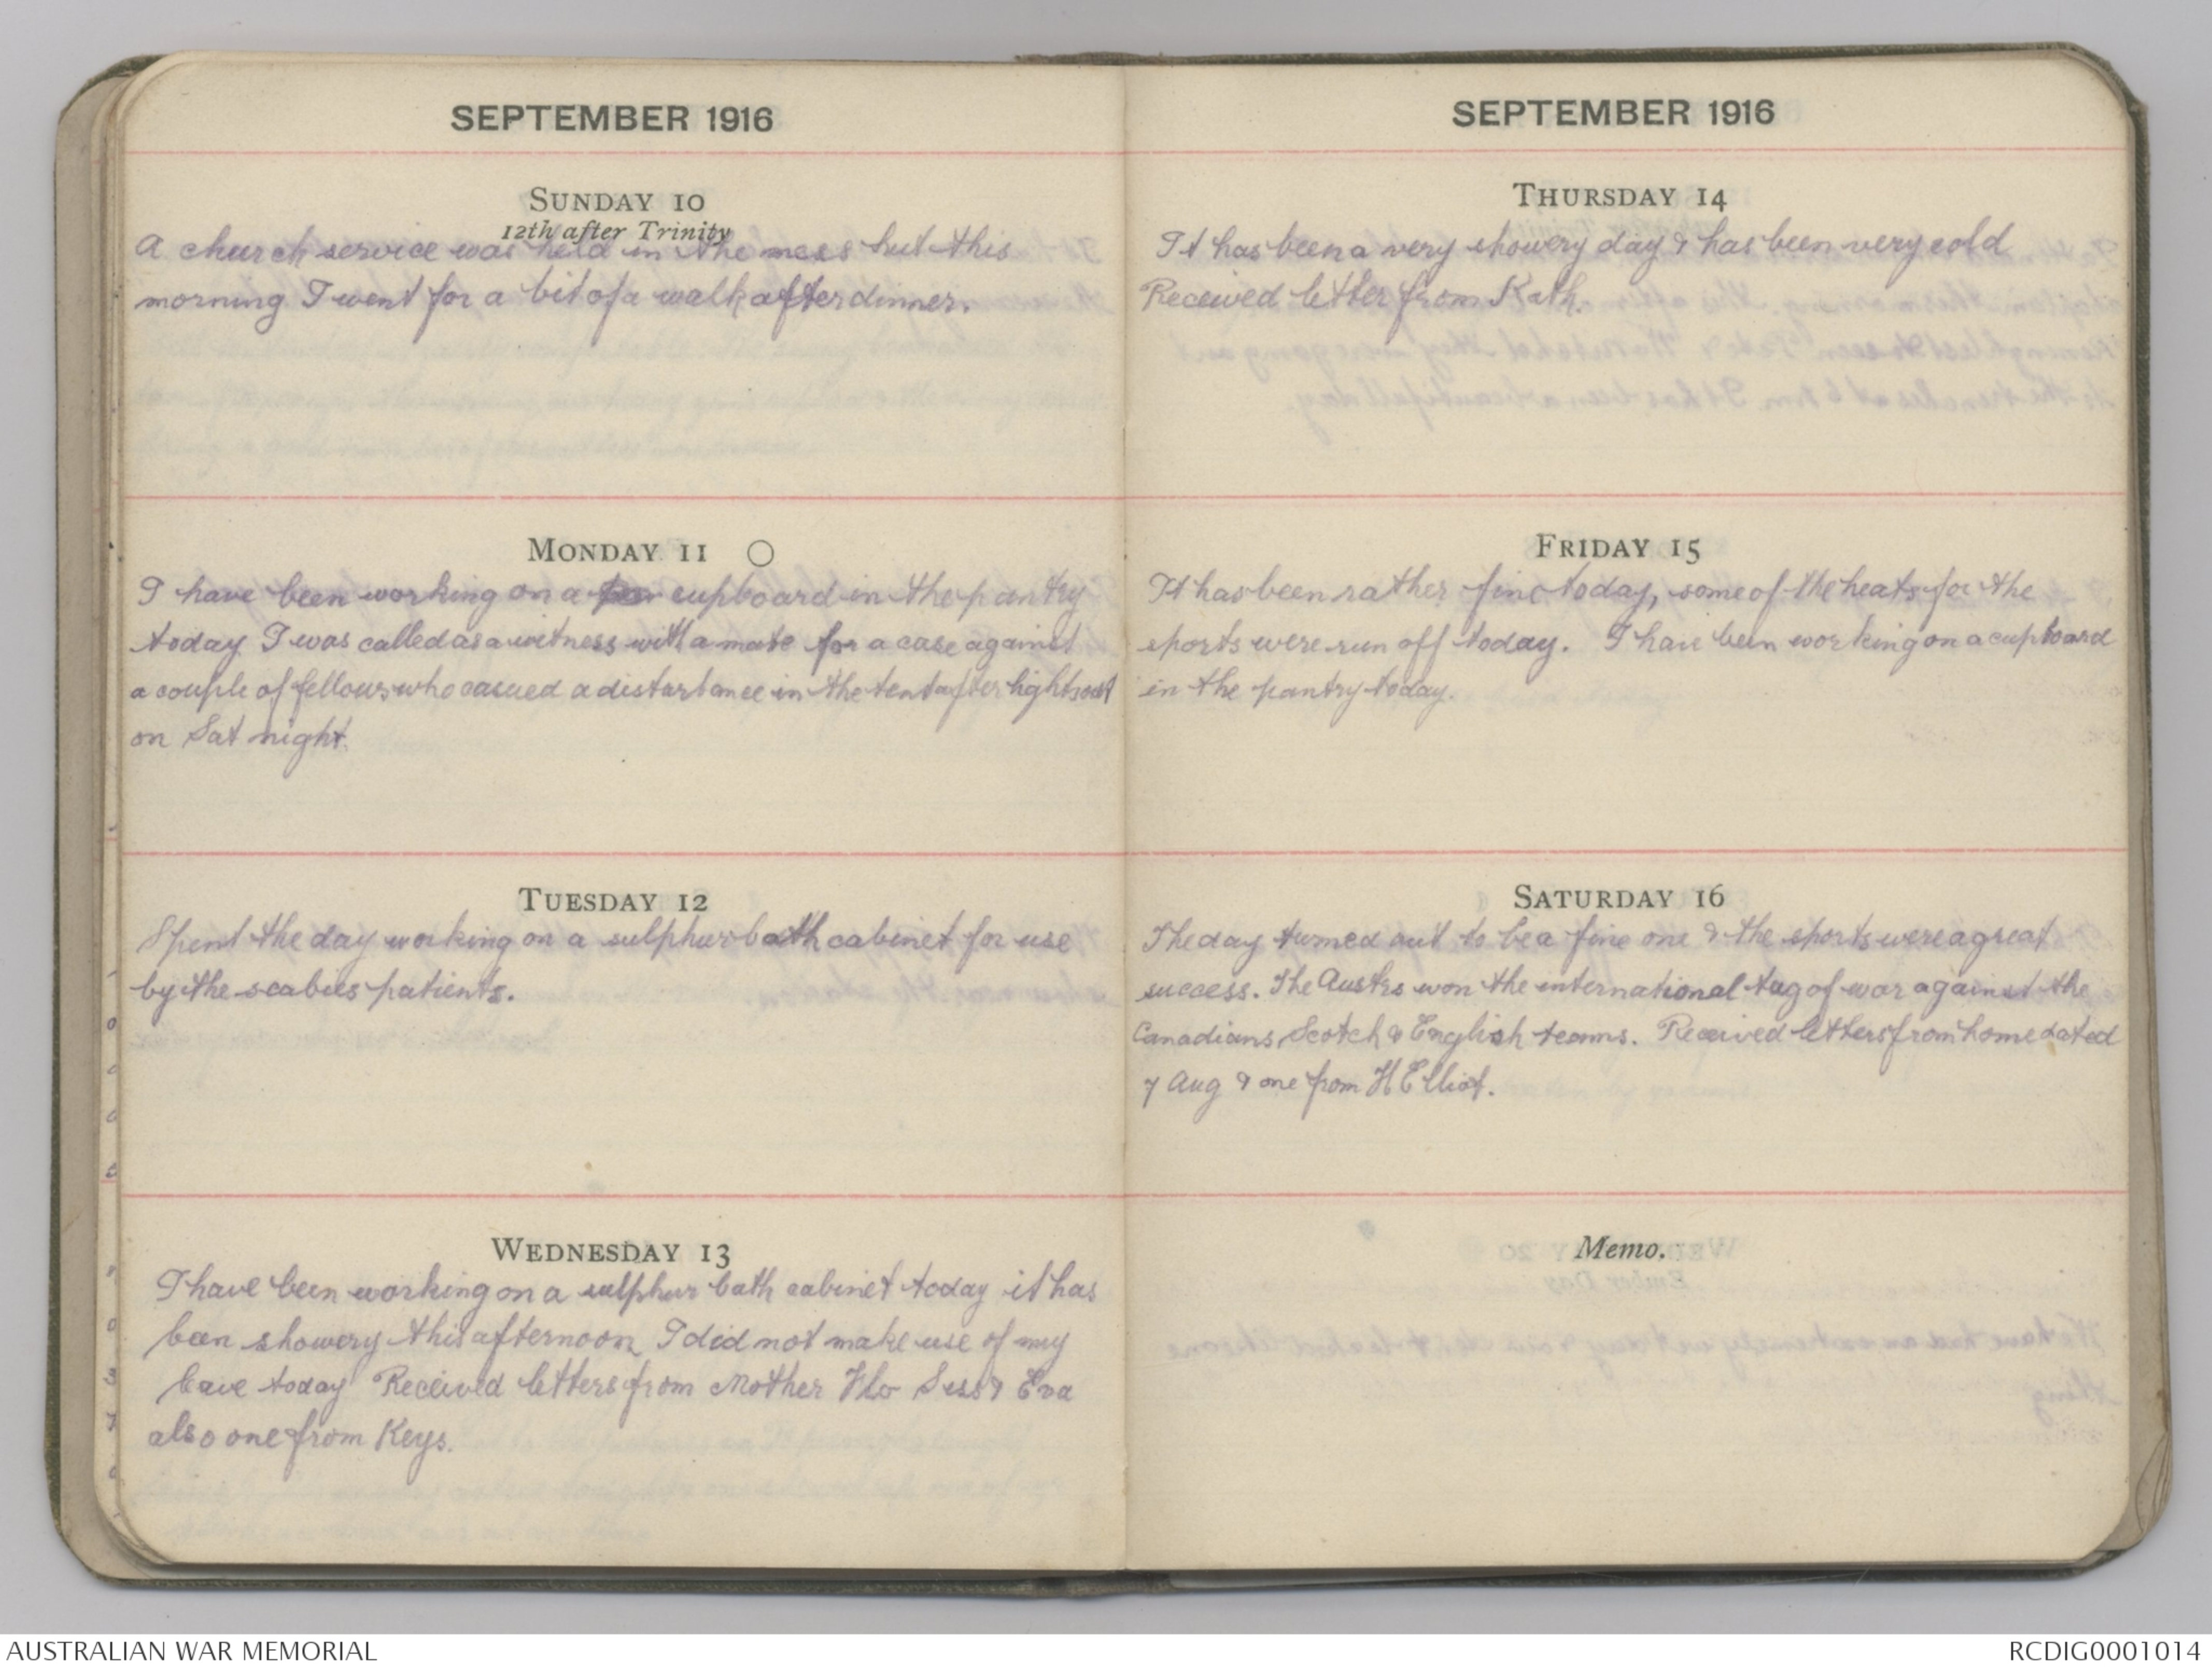 SEPTEMBER 1916
SUNDAY 10
12th after Trinity
A church service was held in the mess hut this
morning I went for a bit of a walk after dinner.
MONDAY 11
I have been working on a cupboard in the pantry
today I was called as a witness with a mate for a case against
a couple of fellows who casued a disturbance in the tent after lights out
on Sat night.
TUESDAY 12
Spent the day working on a sulphur bath cabinet for use
by the scabies patients.
WEDNESDAY 13
I have been working on a sulphur bath cabinet today it has
been showery this afternoon I did not make use of my
leave today Received letters from Mother Flo Siss & Eva
also one from Keys.
SEPTEMBER 1916
THURSDAY 14
It has been a very showery day & has been very cold
Received letter from Kath.
FRIDAY 15
It has been rather fine today, some of the heats for the
sports were run off today. I have been working on a cupboard
in the pantry today.
SATURDAY 16
The day turned out to be a fine one & the sports were a great
success. The Austrs won the international tug of war against the
Canadians Scotch & English teams. Received letters from home dated
7 Aug & one from H Elliot.
Memo.
AUSTRALIAN WAR MEMORIAL
RCDIG0001014